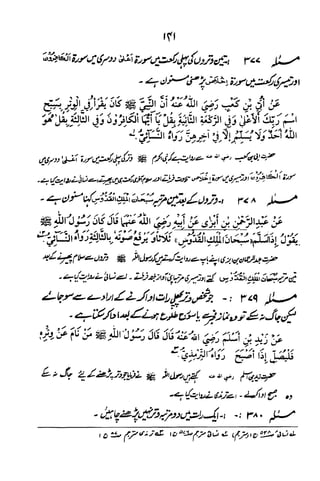 ۱۴۱
مسئلہ ۳۷۷ :۔ تین وتروں کی پہلی رکعت میں سورۃ اعلیٰ، دوسری میں سورۃ الکافرون
اور تیسری رکعت میں سورۃ اخلاص پڑھنی مسنون ہے۔
عَنْ اُبَیِّ بْنِ کَعْبٍ رَضِیَ اللّٰهُ عَنْهُ اَنَّ النَّبِیَّ ﷺ کَانَ یَقْرَأُ فِی الْوِتْرِ بِسَبِّحِ
اسْمَ رَبِّکَ الْاَعْلٰی وَ فِی الرَّکْعَةِ الثَّانِیَةِ بِقُلْ یَا اَیُّهَا الْکَافِرُوْنَ وَ فِی الثَّالِثَةِ بِقُلْ هُوَ
اللّٰهُ اَحَدٌ وَلَا یُسَلِّمُ اِلَّا فِیْ آخِرِهِنَّ رَوَاهُ النَّسَائِیُّ
حضرت ابی بن کعب رضی اللہ عنہ سے روایت ہے کہ نبی اکرم ﷺ وتر کی پہلی رکعت میں سورۃ
سورۃ الکافرون اور تیسری رکعت میں سورۃ
مسئلہ ۳۷۸ :۔ وتروں کے بعد تین مرتبہ سُبْحَانَ الْمَلِکِ الْقُدُّوْسِ کہنا مسنون ہے۔
عَنْ عَبْدِ الرَّحْمٰنِ بْنِ اَبْزٰی عَنْ اَبِیْهِ رَضِیَ اللّٰهُ عَنْهُمَا قَالَ کَانَ رَسُوْلُ اللّٰهِ ﷺ
یَقُوْلُ اِذَا سَلَّمَ سُبْحَانَ الْمَلِکِ الْقُدُّوْسِ ثَلَاثًا وَ یَرْفَعُ صَوْتَهٗ بِالثَّالِثَةِ رَوَاهُ النَّسَائِیُّ
حضرت عبدالرحمٰن بن ابزی اپنے باپ سے روایت کرتے ہیں کہ رسول اللہ ﷺ وتروں سے سلام پھیرنے کے بعد
تین مرتبہ سُبْحَانَ الْمَلِکِ الْقُدُّوْسِ کہتے اور تیسری مرتبہ اپنی آواز بلند فرماتے۔ اسے نسائی نے روایت کیا ہے۔
مسئلہ ۳۷۹ :۔ جو شخص وتر پچھلی رات ادا کرنے کے ارادے سے سو جائے
لیکن جاگ نہ سکے تو وہ نماز فجر سے پہلے یا سورج طلوع ہونے کے بعد ادا کر سکتا ہے۔
عَنْ زَیْدِ بْنِ اَسْلَمَ رَضِیَ اللّٰهُ عَنْهُ قَالَ قَالَ رَسُوْلُ اللّٰهِ ﷺ مَنْ نَامَ عَنْ وِتْرِهٖ
فَلْیُصَلِّ اِذَا اَصْبَحَ رَوَاهُ التِّرْمِذِیُّ
حضرت زید بن اسلم رضی اللہ عنہ کہتے ہیں رسول اللہ ﷺ نے فرمایا جو وتر پڑھنے کے لیے جاگ نہ سکے
وہ صبح ادا کرلے۔ اسے ترمذی نے روایت کیا ہے۔
مسئلہ ۳۸۰ :۔ ایک رات میں دو مرتبہ وتر نہیں پڑھنے چاہئیں۔